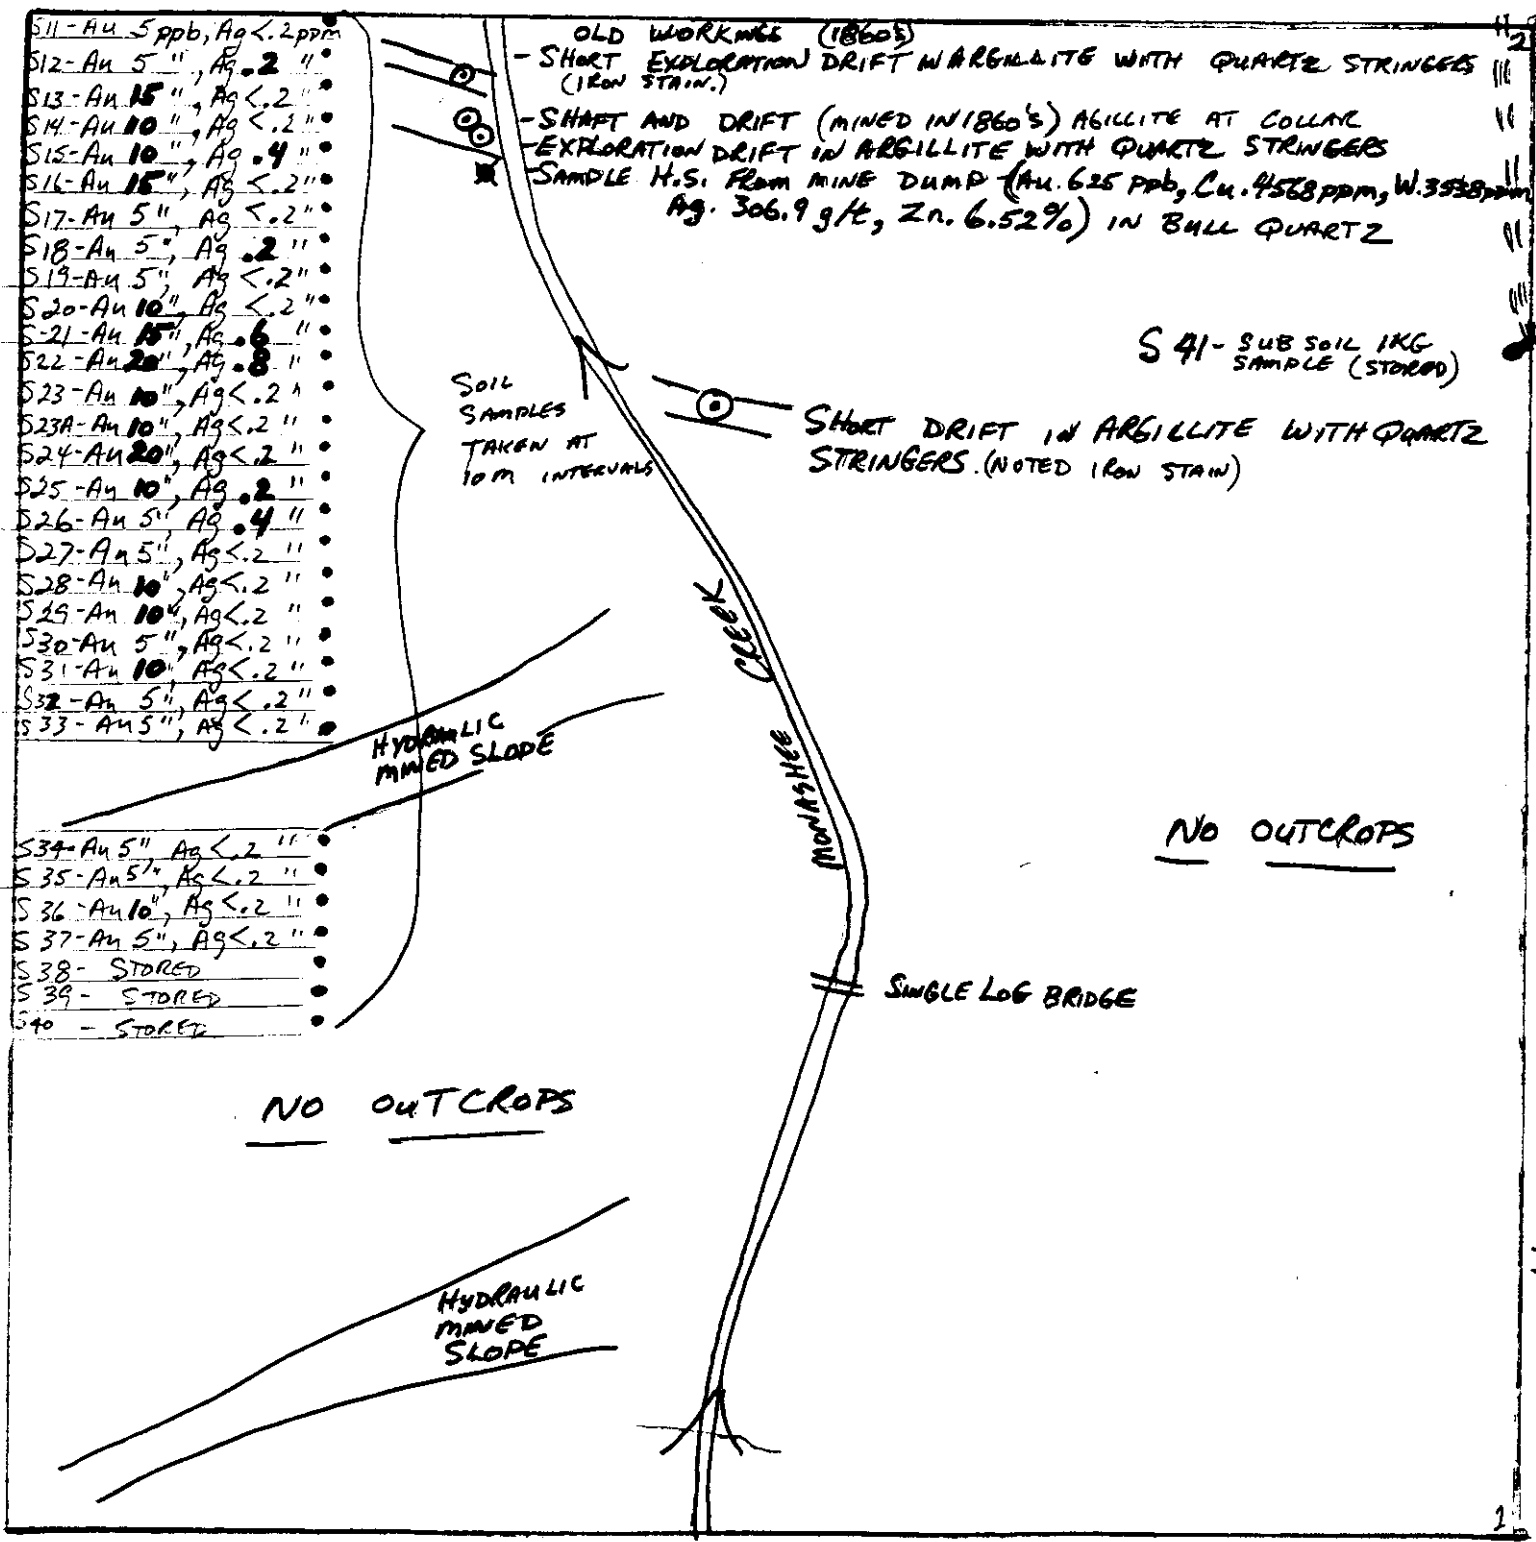 S11-Au 5 ppb, Ag <.2 ppm
S12-Au 5 ", Ag .2 "
S13-Au 15 ", Ag <.2 "
S14-Au 10 ", Ag <.2 "
S15-Au 10 ", Ag .4 "
S16-Au 15 ", Ag <.2 "
S17-Au 5 ", Ag <.2 "
S18-Au 5 ", Ag .2 "
S19-Au 5 ", Ag <.2 "
S20-Au 10 ", Ag <.2 "
S-21-Au 15 ", Ag .6 "
S22-Au 20 ", Ag .8 "
S23-Au 10 ", Ag <.2 "
S23A-Au 10 ", Ag <.2 "
S24-Au 20 ", Ag <.2 "
S25-Au 10 ", Ag .2 "
S26-Au 5 ", Ag .4 "
S27-Au 5 ", Ag <.2 "
S28-Au 10 ", Ag <.2 "
S29-Au 10 ", Ag <.2 "
S30-Au 5 ", Ag <.2 "
S31-Au 10 ", Ag <.2 "
S32-Au 5 ", Ag <.2 "
S33-Au 5 ", Ag <.2 "
OLD WORKINGS (1860's)
- SHORT EXPLORATION DRIFT IN ARGILLITE WITH QUARTZ STRINGERS
(IRON STAIN.)
- SHAFT AND DRIFT (MINED IN 1860's) AGILLITE AT COLLAR
- EXPLORATION DRIFT IN ARGILLITE WITH QUARTZ STRINGERS
- SAMPLE H.S. FROM MINE DUMP (Au. 625 ppb, Cu. 4568 ppm, W. 3538 ppm
Ag. 306.9 g/t, Zn. 6.52%) IN BULL QUARTZ
2
S 41 - SUB SOIL 1KG
SAMPLE (STORED)
SOIL
SAMPLES
TAKEN AT
10 M INTERVALS
SHORT DRIFT IN ARGILLITE WITH QUARTZ
STRINGERS. (NOTED IRON STAIN)
MONASHEE CREEK
HYDRAULIC
MINED SLOPE
NO OUTCROPS
S34-Au 5 ", Ag <.2 "
S35-Au 5 ", Ag <.2 "
S36-Au 10 ", Ag <.2 "
S37-Au 5 ", Ag <.2 "
S38- STORED
S39- STORED
S40 - STORED
SINGLE LOG BRIDGE
NO OUTCROPS
HYDRAULIC
MINED
SLOPE
1